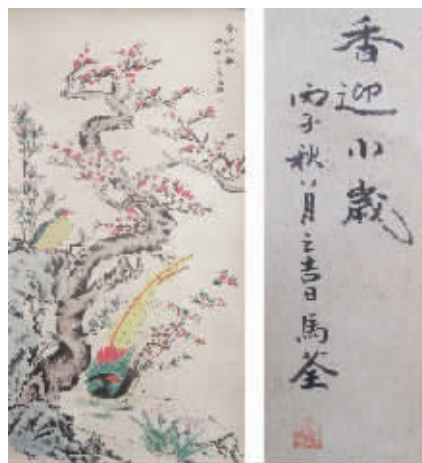 香迎小歲
丙子秋八月之吉日馬荃